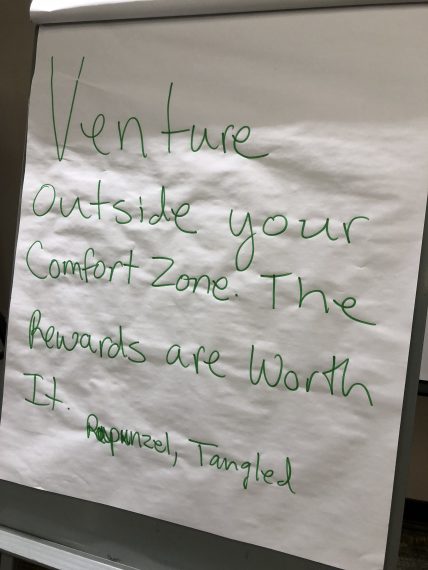 Venture
outside your
Comfort Zone. The
Rewards are Worth
It.
Rapunzel, Tangled